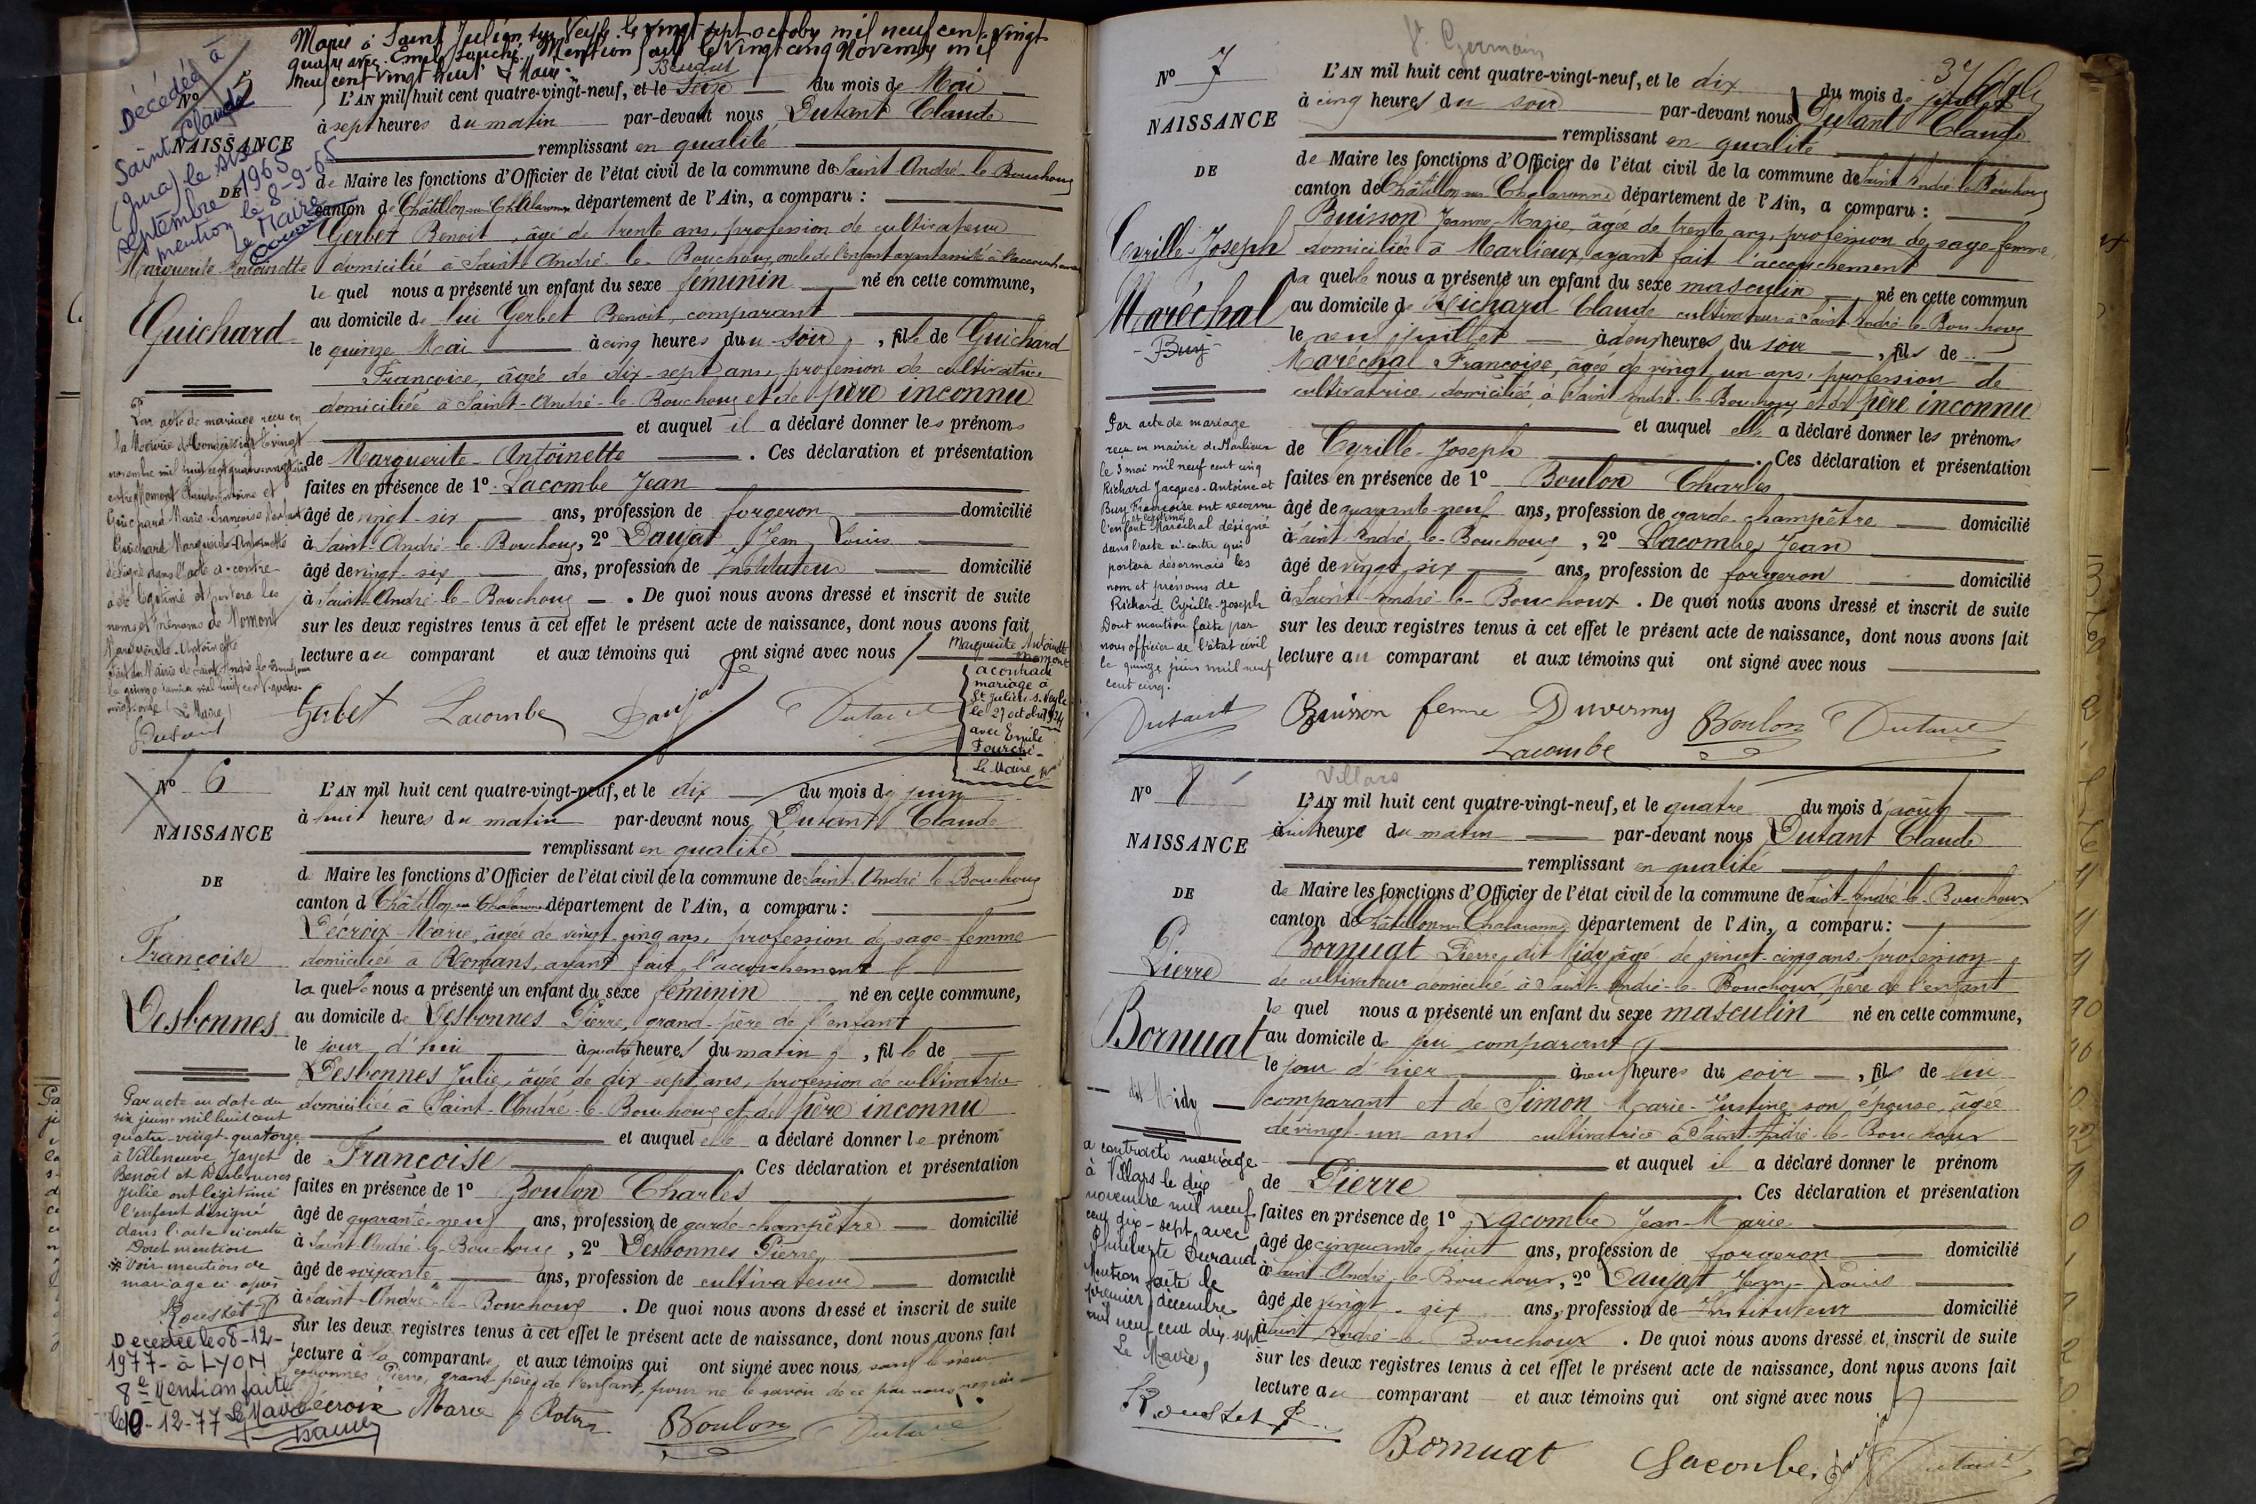 Marié à Saint Julien sur Veyle le vingt sept octobre mil neuf cent vingt
quatre avec Emile Fourché. Mention faite le vingt cinq Novembre mil
neuf cent vingt huit Le Maire.
Décédée à
Saint Claude
(Jura) le six
septembre 1965
mention le 8-9-65
Le Maire
N° 5
NAISSANCE
DE
Marguerite Antoinette
Guichard
L'AN mil huit cent quatre-vingt-neuf, et le seize du mois de Mai
à sept heures du matin par-devant nous Dutant Claude
remplissant en qualité
de Maire les fonctions d'Officier de l'état civil de la commune de Saint-André-le-Bouchoux
canton de Châtillon-sur-Chalaronne département de l'Ain, a comparu :
Gerbet Benoit, âgé de trente ans, profession de cultivateur
domicilié à Saint-André-le-Bouchoux, oncle de l'enfant ayant assisté à l'accouchement
le quel nous a présenté un enfant du sexe féminin né en cette commune,
au domicile de lui Gerbet Benoit, comparant
le quinze Mai à cinq heures du soir, fille de Guichard
Françoise, âgée de dix-sept ans, profession de cultivatrice
domiciliée à Saint-André-le-Bouchoux et de père inconnu
et auquel il a déclaré donner les prénoms
de Marguerite-Antoinette. Ces déclaration et présentation
faites en présence de 1° Lacombe Jean
âgé de vingt-six ans, profession de forgeron domicilié
à Saint-André-le-Bouchoux, 2° Daujat Jean Louis
âgé de vingt-six ans, profession de Instituteur domicilié
à Saint-André-le-Bouchoux. De quoi nous avons dressé et inscrit de suite
sur les deux registres tenus à cet effet le présent acte de naissance, dont nous avons fait
lecture au comparant et aux témoins qui ont signé avec nous
Gerbet Lacombe Daujat Dutant
Par acte de mariage reçu en
la Mairie de
novembre mil huit cent quatre-vingt
entre Momont Claude Antoine et
Guichard Marie-Françoise
Guichard Marguerite-Antoinette
désigné dans l'acte ci-contre
a été légitimé et portera les
noms et prénoms de Momont
Marguerite-Antoinette
Fait en Mairie de Saint-André-le-Bouchoux
Le Maire
Dutant
Marguerite Antoinette
Momont
a contracté
mariage à
St Julien s. Veyle
le 27 octobre 1924
avec Emile
Fourché
Le Maire
N° 6
NAISSANCE
DE
Françoise
Desbonnes
L'AN mil huit cent quatre-vingt-neuf, et le dix du mois de juin
à huit heures du matin par-devant nous Dutant Claude
remplissant en qualité
de Maire les fonctions d'Officier de l'état civil de la commune de Saint-André-le-Bouchoux
canton d Châtillon-sur-Chalaronne département de l'Ain, a comparu :
Décroix Marie, âgée de vingt-cinq ans, profession de sage-femme
domiciliée à Romans, ayant fait l'accouchement
la quelle nous a présenté un enfant du sexe féminin né en cette commune,
au domicile de Desbonnes Pierre, grand-père de l'enfant
le jour d'hui à quatre heures du matin, fille de
Desbonnes Julie, âgée de dix-sept ans, profession de cultivatrice
domiciliée à Saint-André-le-Bouchoux et de père inconnu
et auquel elle a déclaré donner le prénom
de Françoise Ces déclaration et présentation
faites en présence de 1° Boulon Charles
âgé de quarante-neuf ans, profession de garde-champêtre domicilié
à Saint-André-le-Bouchoux, 2° Desbonnes Pierre
âgé de soixante ans, profession de cultivateur domicilié
à Saint-André-le-Bouchoux. De quoi nous avons dressé et inscrit de suite
sur les deux registres tenus à cet effet le présent acte de naissance, dont nous avons fait
lecture à la comparante et aux témoins qui ont signé avec nous sauf le sieur
Desbonnes Pierre, grand-père de l'enfant, pour ne le savoir de ce par nous requis
Décroix Marie Boulon Dutant
Par acte en date du
six juin mil huit cent
quatre-vingt-quatorze
à Villeneuve Jayet
Benoît et Desbonnes
Julie ont légitimé
l'enfant désigné
dans l'acte ci-contre
Dont mention
* Voir mention de
mariage ci-après
Rousset
Décédée le 8-12-
1977 - à LYON
8e Mention faite
le 10-12-77 Le Maire
St Germain
N° 7
NAISSANCE
DE
Cyrille-Joseph
Maréchal
- Buy -
L'AN mil huit cent quatre-vingt-neuf, et le dix du mois de juillet
à cinq heures du soir par-devant nous Dutant Claude
remplissant en qualité
de Maire les fonctions d'Officier de l'état civil de la commune de Saint-André-le-Bouchoux
canton de Châtillon-sur-Chalaronne département de l'Ain, a comparu :
Buisson Jeanne-Marie, âgée de trente ans, profession de sage-femme
domiciliée à Marlieux, ayant fait l'accouchement
la quelle nous a présenté un enfant du sexe masculin né en cette commun
au domicile de Richard Claude cultivateur à Saint-André-le-Bouchoux
le neuf juillet à deux heures du soir, fils de
Maréchal Françoise, âgée de vingt-un ans, profession de
cultivatrice, domiciliée à Saint-André-le-Bouchoux et de père inconnu
et auquel elle a déclaré donner les prénoms
de Cyrille-Joseph. Ces déclaration et présentation
faites en présence de 1° Boulon Charles
âgé de quarante-neuf ans, profession de garde-champêtre domicilié
à Saint-André-le-Bouchoux, 2° Lacombe Jean
âgé de vingt-six ans, profession de forgeron domicilié
à Saint-André-le-Bouchoux. De quoi nous avons dressé et inscrit de suite
sur les deux registres tenus à cet effet le présent acte de naissance, dont nous avons fait
lecture au comparant et aux témoins qui ont signé avec nous
Buisson femme Duvernay Boulon Dutant
Lacombe
Par acte de mariage
reçu en mairie de Marlieux
le 3 mai mil neuf cent cinq
Richard Jacques-Antoine et
Buy Françoise ont reconnu
et légitimé
l'enfant Maréchal désigné
dans l'acte ci-contre qui
portera désormais les
nom et prénoms de
Richard Cyrille-Joseph
Dont mention faite par
nous officier de l'état civil
le quinze juin mil neuf
cent cinq.
Dutant
Villars
N° 8
NAISSANCE
DE
Pierre
Bornuat
dit Midy
L'AN mil huit cent quatre-vingt-neuf, et le quatre du mois d'août
à huit heure du matin par-devant nous Dutant Claude
remplissant en qualité
de Maire les fonctions d'Officier de l'état civil de la commune de Saint-André-le-Bouchoux
canton de Châtillon-sur-Chalaronne département de l'Ain, a comparu :
Bornuat Pierre, dit Midy âgé de vingt-cinq ans, profession
de cultivateur domicilié à Saint-André-le-Bouchoux, père de l'enfant
le quel nous a présenté un enfant du sexe masculin né en cette commune,
au domicile de lui comparant
le jour d'hier à neuf heures du soir, fils de lui
comparant et de Simon Marie-Justine son épouse, âgée
de vingt-un ans cultivatrice à Saint-André-le-Bouchoux
et auquel il a déclaré donner le prénom
de Pierre Ces déclaration et présentation
faites en présence de 1° Lacombe Jean-Marie
âgé de cinquante huit ans, profession de forgeron domicilié
à Saint-André-le-Bouchoux, 2° Daujat Jean-Louis
âgé de vingt-six ans, profession de Instituteur domicilié
à Saint-André-le-Bouchoux. De quoi nous avons dressé et inscrit de suite
sur les deux registres tenus à cet effet le présent acte de naissance, dont nous avons fait
lecture au comparant et aux témoins qui ont signé avec nous
Bornuat Lacombe Daujat Dutant
a contracté mariage
à Villars le dix
novembre mil neuf
cent dix-sept avec
Philiberte Durand
Mention faite le
premier décembre
mil neuf cent dix-sept
Le Maire,
Rousset